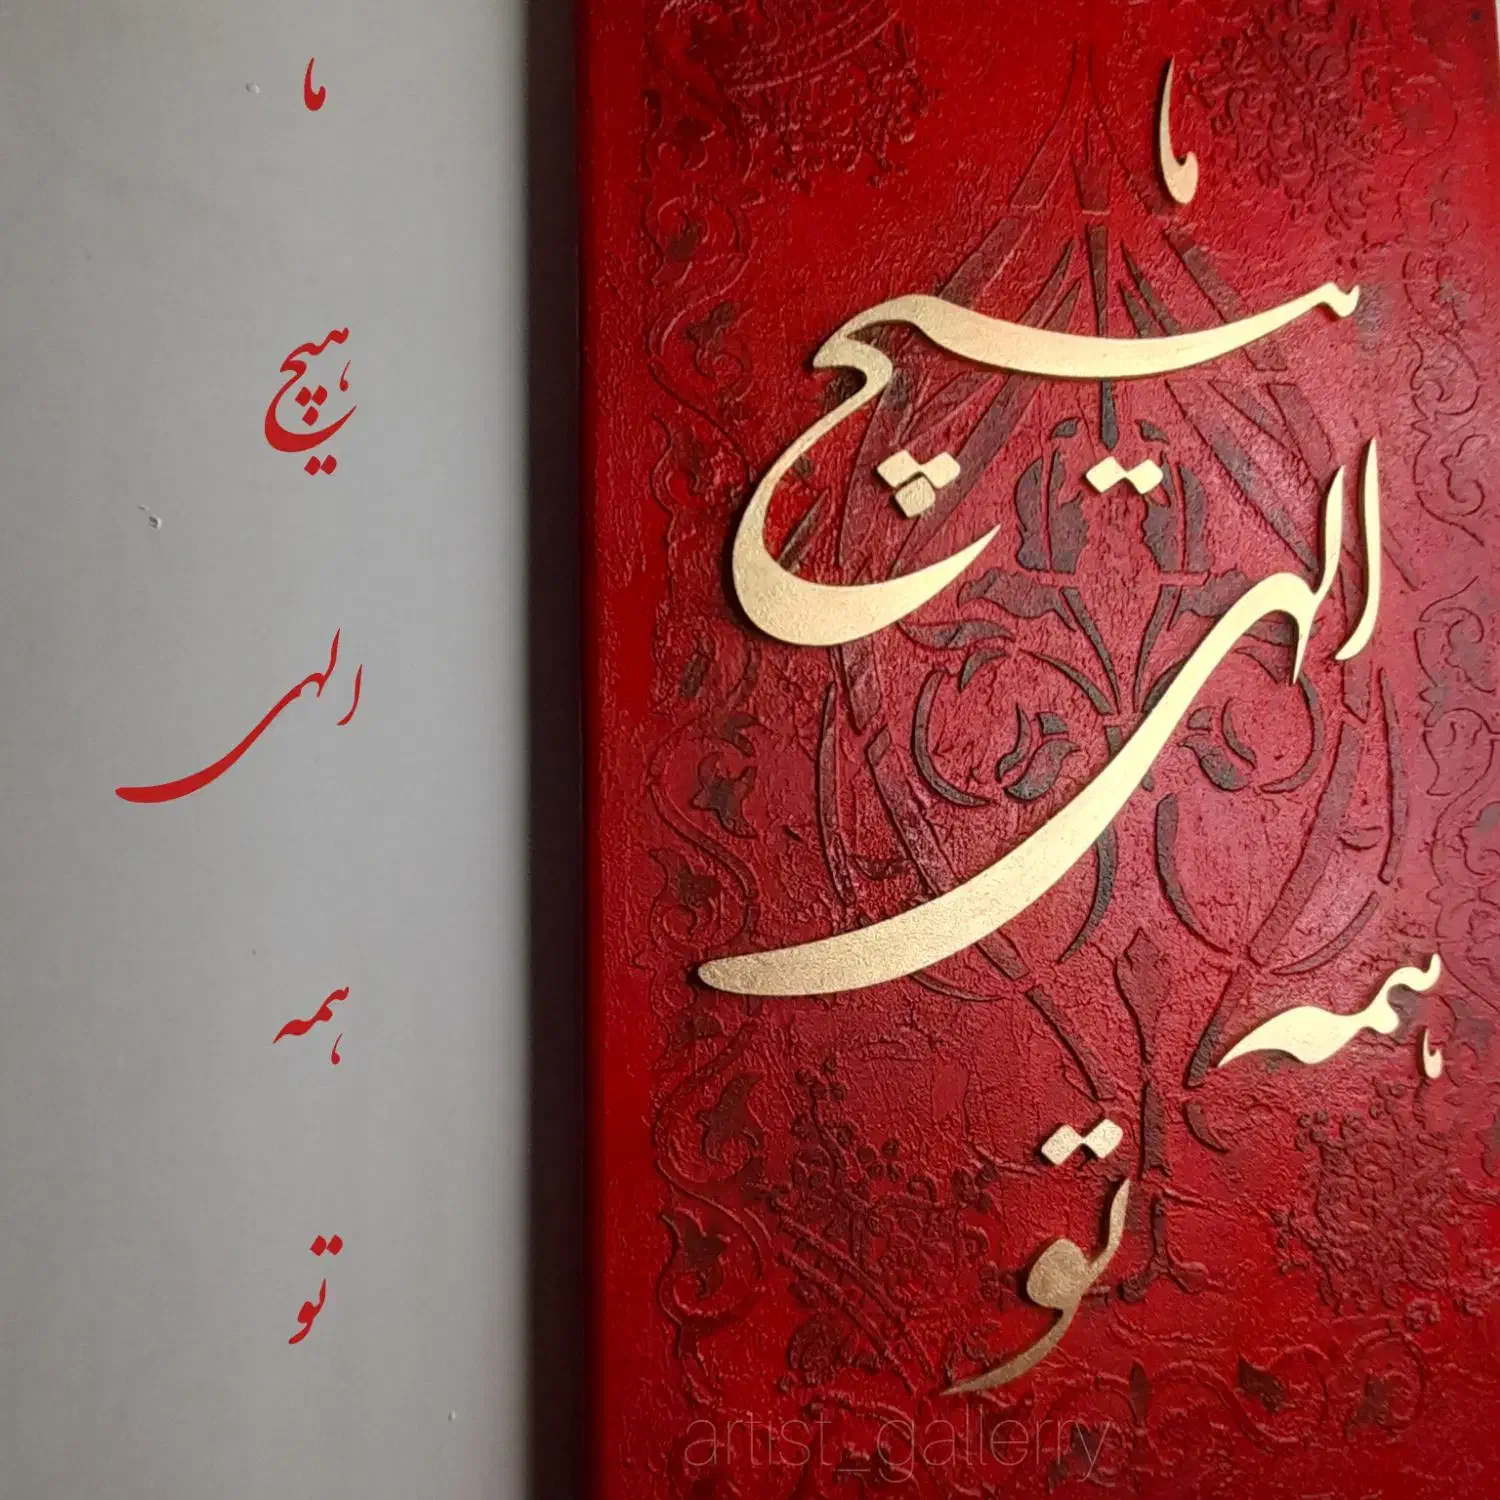 ما
هیچ
الهی
همه
تو
ما
هیچ
الهی
همه
تو
artist_gallerry